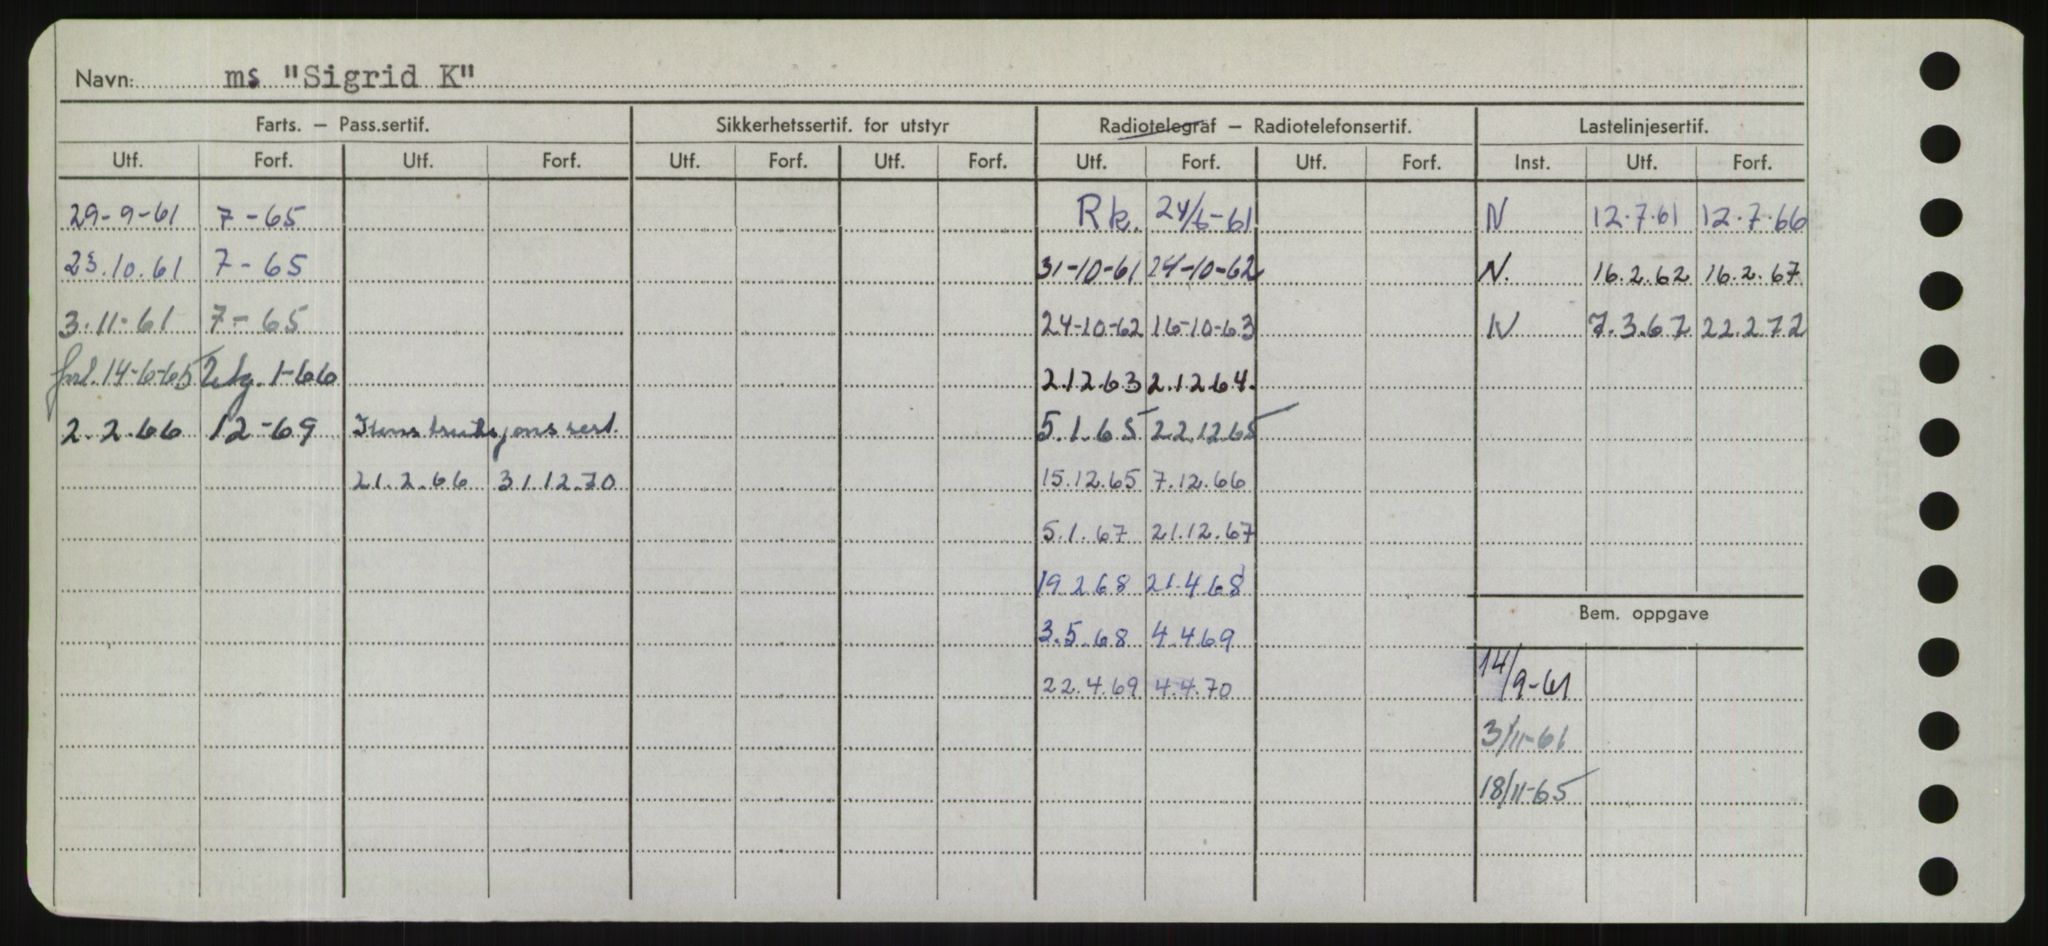 Navn: ms "Sigrid K"
Farts. – Pass.sertif. Sikkerhetssertif. for utstyr Radiotelegraf – Radiotelefonsertif. Lastelinjesertif.
Utf. Forf. Utf. Forf. Utf. Forf. Utf. Forf. Utf. Forf. Utf. Forf. Inst. Utf. Forf.
29-9-61 7-65 Rk. 24/6-61 N 12.7.61 12.7.66
23.10.61 7-65 31-10-61 24-10-62 N. 16.2.62 16.2.67
3.11-61 7-65 24-10-62 16-10-63 N 7.3.67 22.2.72
forl. 14-6-65 Utg. 1-66 2.12.63 2.12.64.
2.2.66 12-69 Konstruksjonssert. 5.1.65 22.12.65
21.2.66 31.12.70 15.12.65 7.12.66
5.1.67 21.12.67
19.2.68 21.4.68
Bem. oppgave
3.5.68 4.4.69
22.4.69 4.4.70 14/9-61
3/11-61
18/11-65